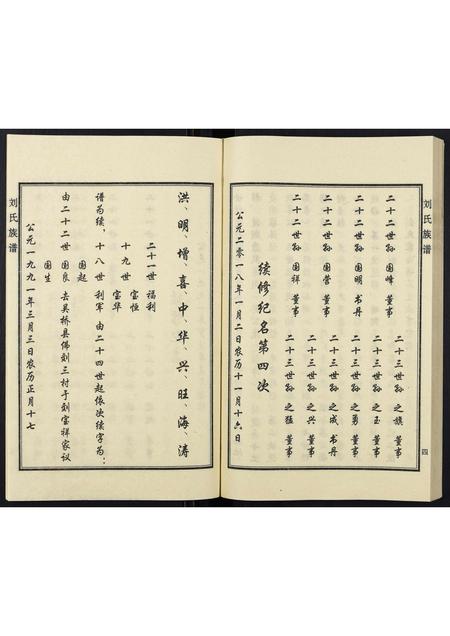 刘氏族谱
四
二十二世孙 国峰 董事 二十三世孙 之旗 董事
二十二世孙 国明 书丹 二十三世孙 之玉 董事
二十二世孙 国营 董事 二十三世孙 之勇 董事
二十二世孙 国祥 董事 二十三世孙 之成 书丹
二十三世孙 之兴 董事
二十三世孙 之猛 董事
续修纪名第四次
公元二零一八年一月二日农历十一月十六日
洪、明、增、喜、中、华、兴、旺、海、涛
二十一世 福利
十九世 宝恒
宝华
谱为续，十八世 利军 由二十四世起依次续字为：
国起
由二十二世 国良 去吴桥县佛刘三村于刘宝祥家议
国生
公元一九九一年三月三日农历正月十七
刘氏族谱